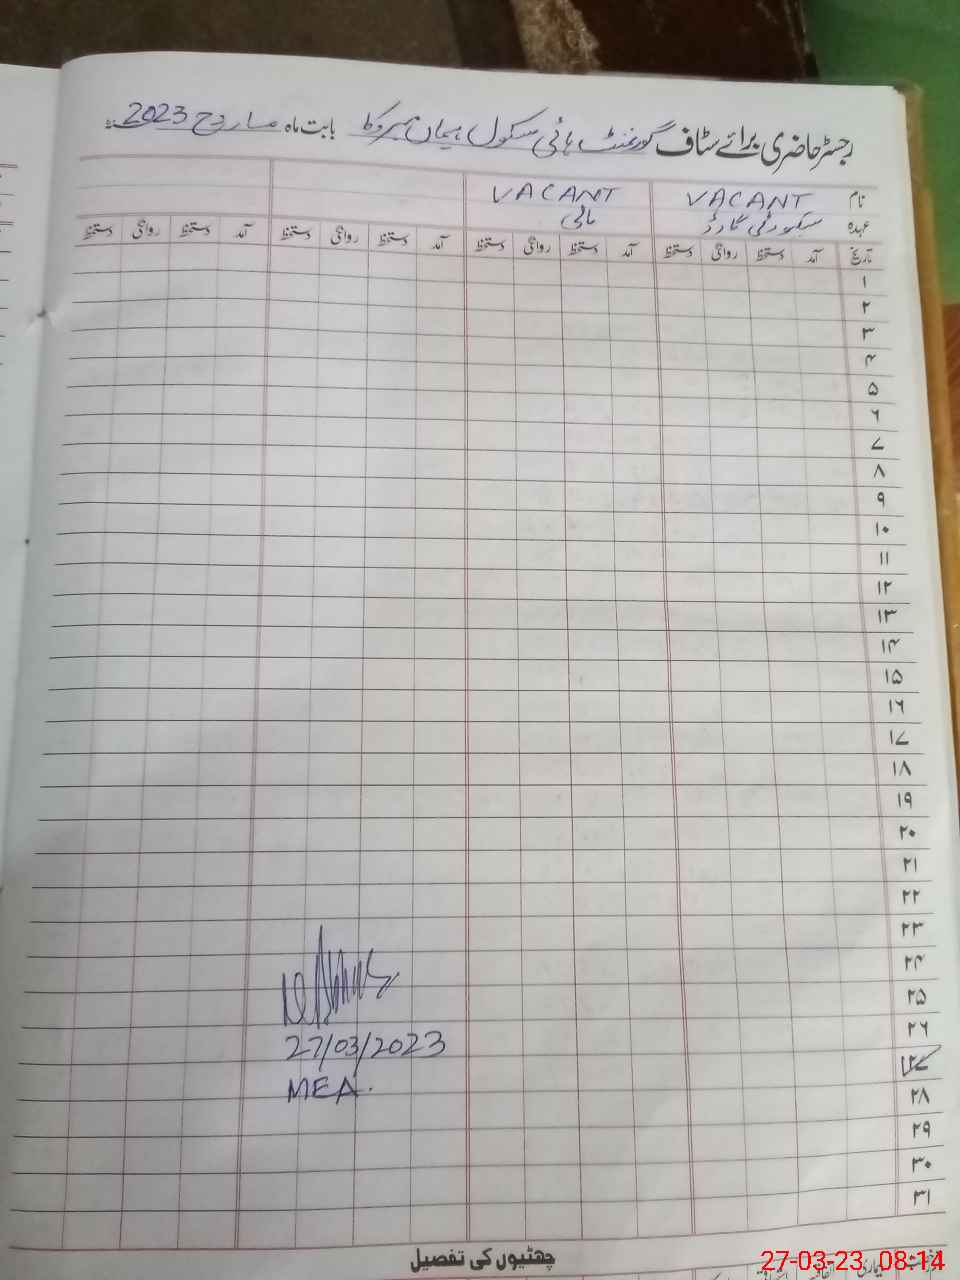 رجسٹر حاضری برائے سٹاف گورنمنٹ ہائی سکول بابت ماہ مارچ 2023
نام VACANT VACANT
عہدہ سیکیورٹی گارڈ مالی
تاریخ آمد دستخط روانگی دستخط آمد دستخط روانگی دستخط آمد دستخط روانگی دستخط آمد دستخط روانگی دستخط
۱
۲
۳
۴
۵
۶
۷
۸
۹
۱۰
۱۱
۱۲
۱۳
۱۴
۱۵
۱۶
۱۷
۱۸
۱۹
۲۰
۲۱
۲۲
۲۳
۲۴
۲۵
۲۶
۲۷
۲۸
۲۹
۳۰
۳۱
27/03/2023
MEA.
چھٹیوں کی تفصیل
بیماری
27-03-23, 08:14